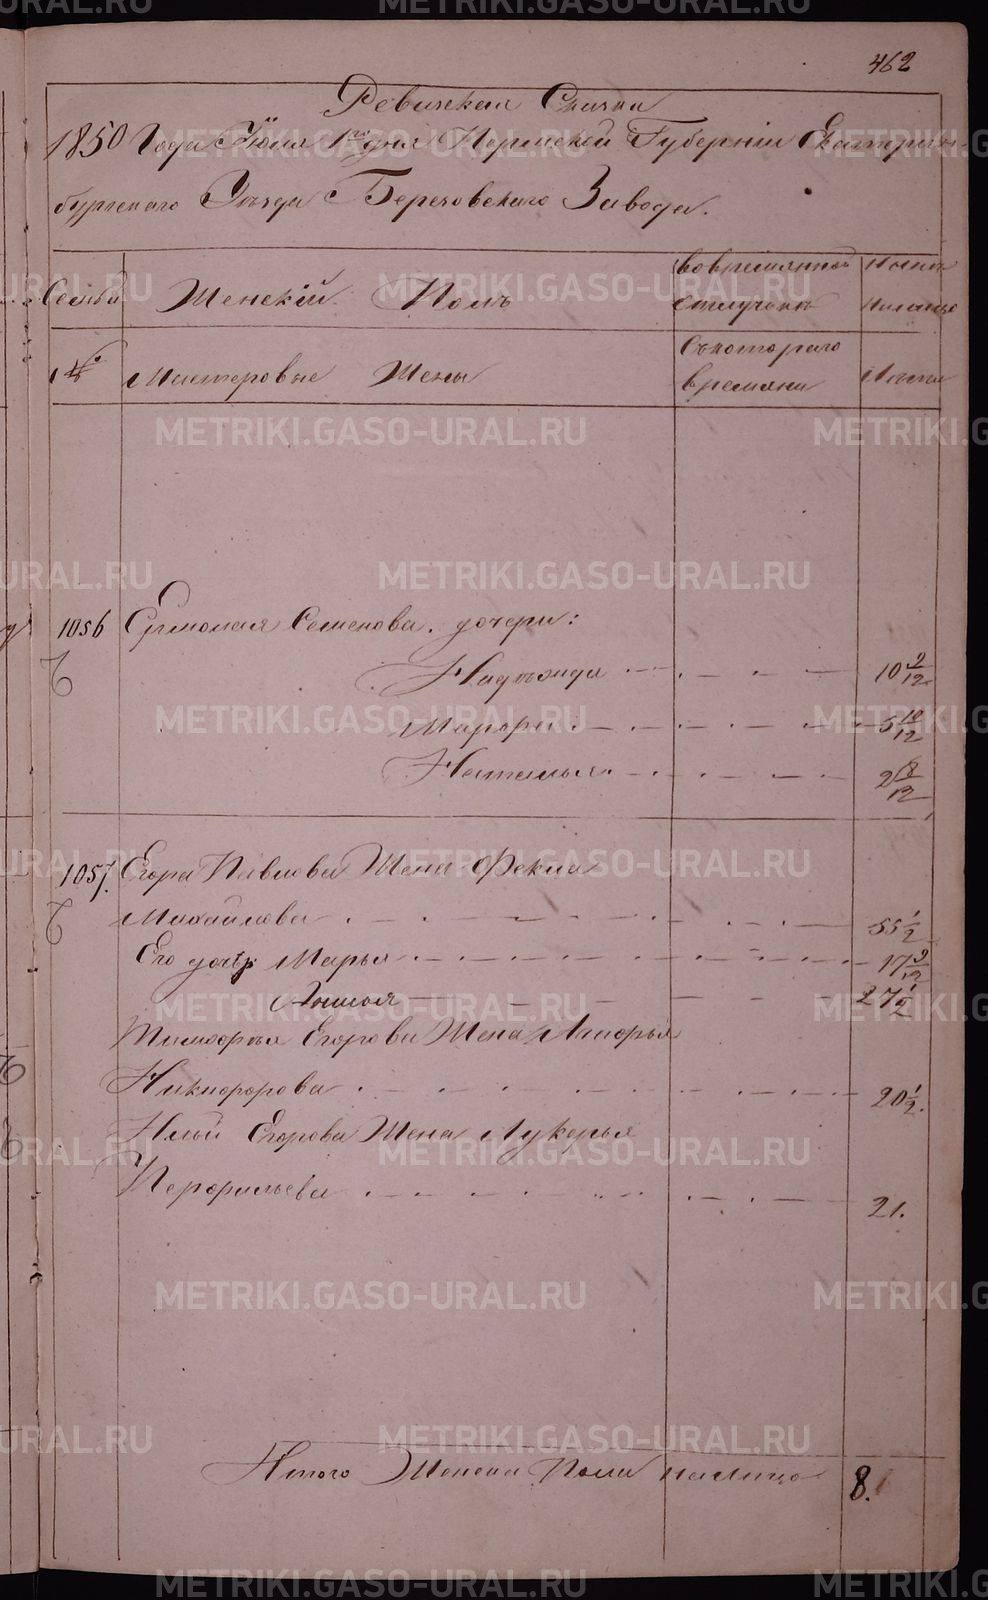 462
Ревижская Сказка
1850 Года Июля 1го дня Пермской Губернiи Екатерин-
бургскаго Уѣзда Березовскаго Завода.
Семьи Женскiй Полъ вовремянной Ныне
отлучкѣ налицо
№ Мастеровые Жены съкотораго Лѣта
времяни
1056 Ермолая Семенова дочери:
Надѣжда 10 2/12
Марфа 5 10/12
Наталья 2 8/12
1057. Егора Павлова Жена Фекла
Михайлова 55 1/2
Его дочѣр: Марья 17 3/12
Анисья 27 1/2
Тимофѣя Егорова Жена Анофрья
Никифорова 20 1/2.
Ильи Егорова Жена Лукерья
Перфильева 21.
Итого Женска Пола налицо 8.
METRIKI.GASO-URAL.RU